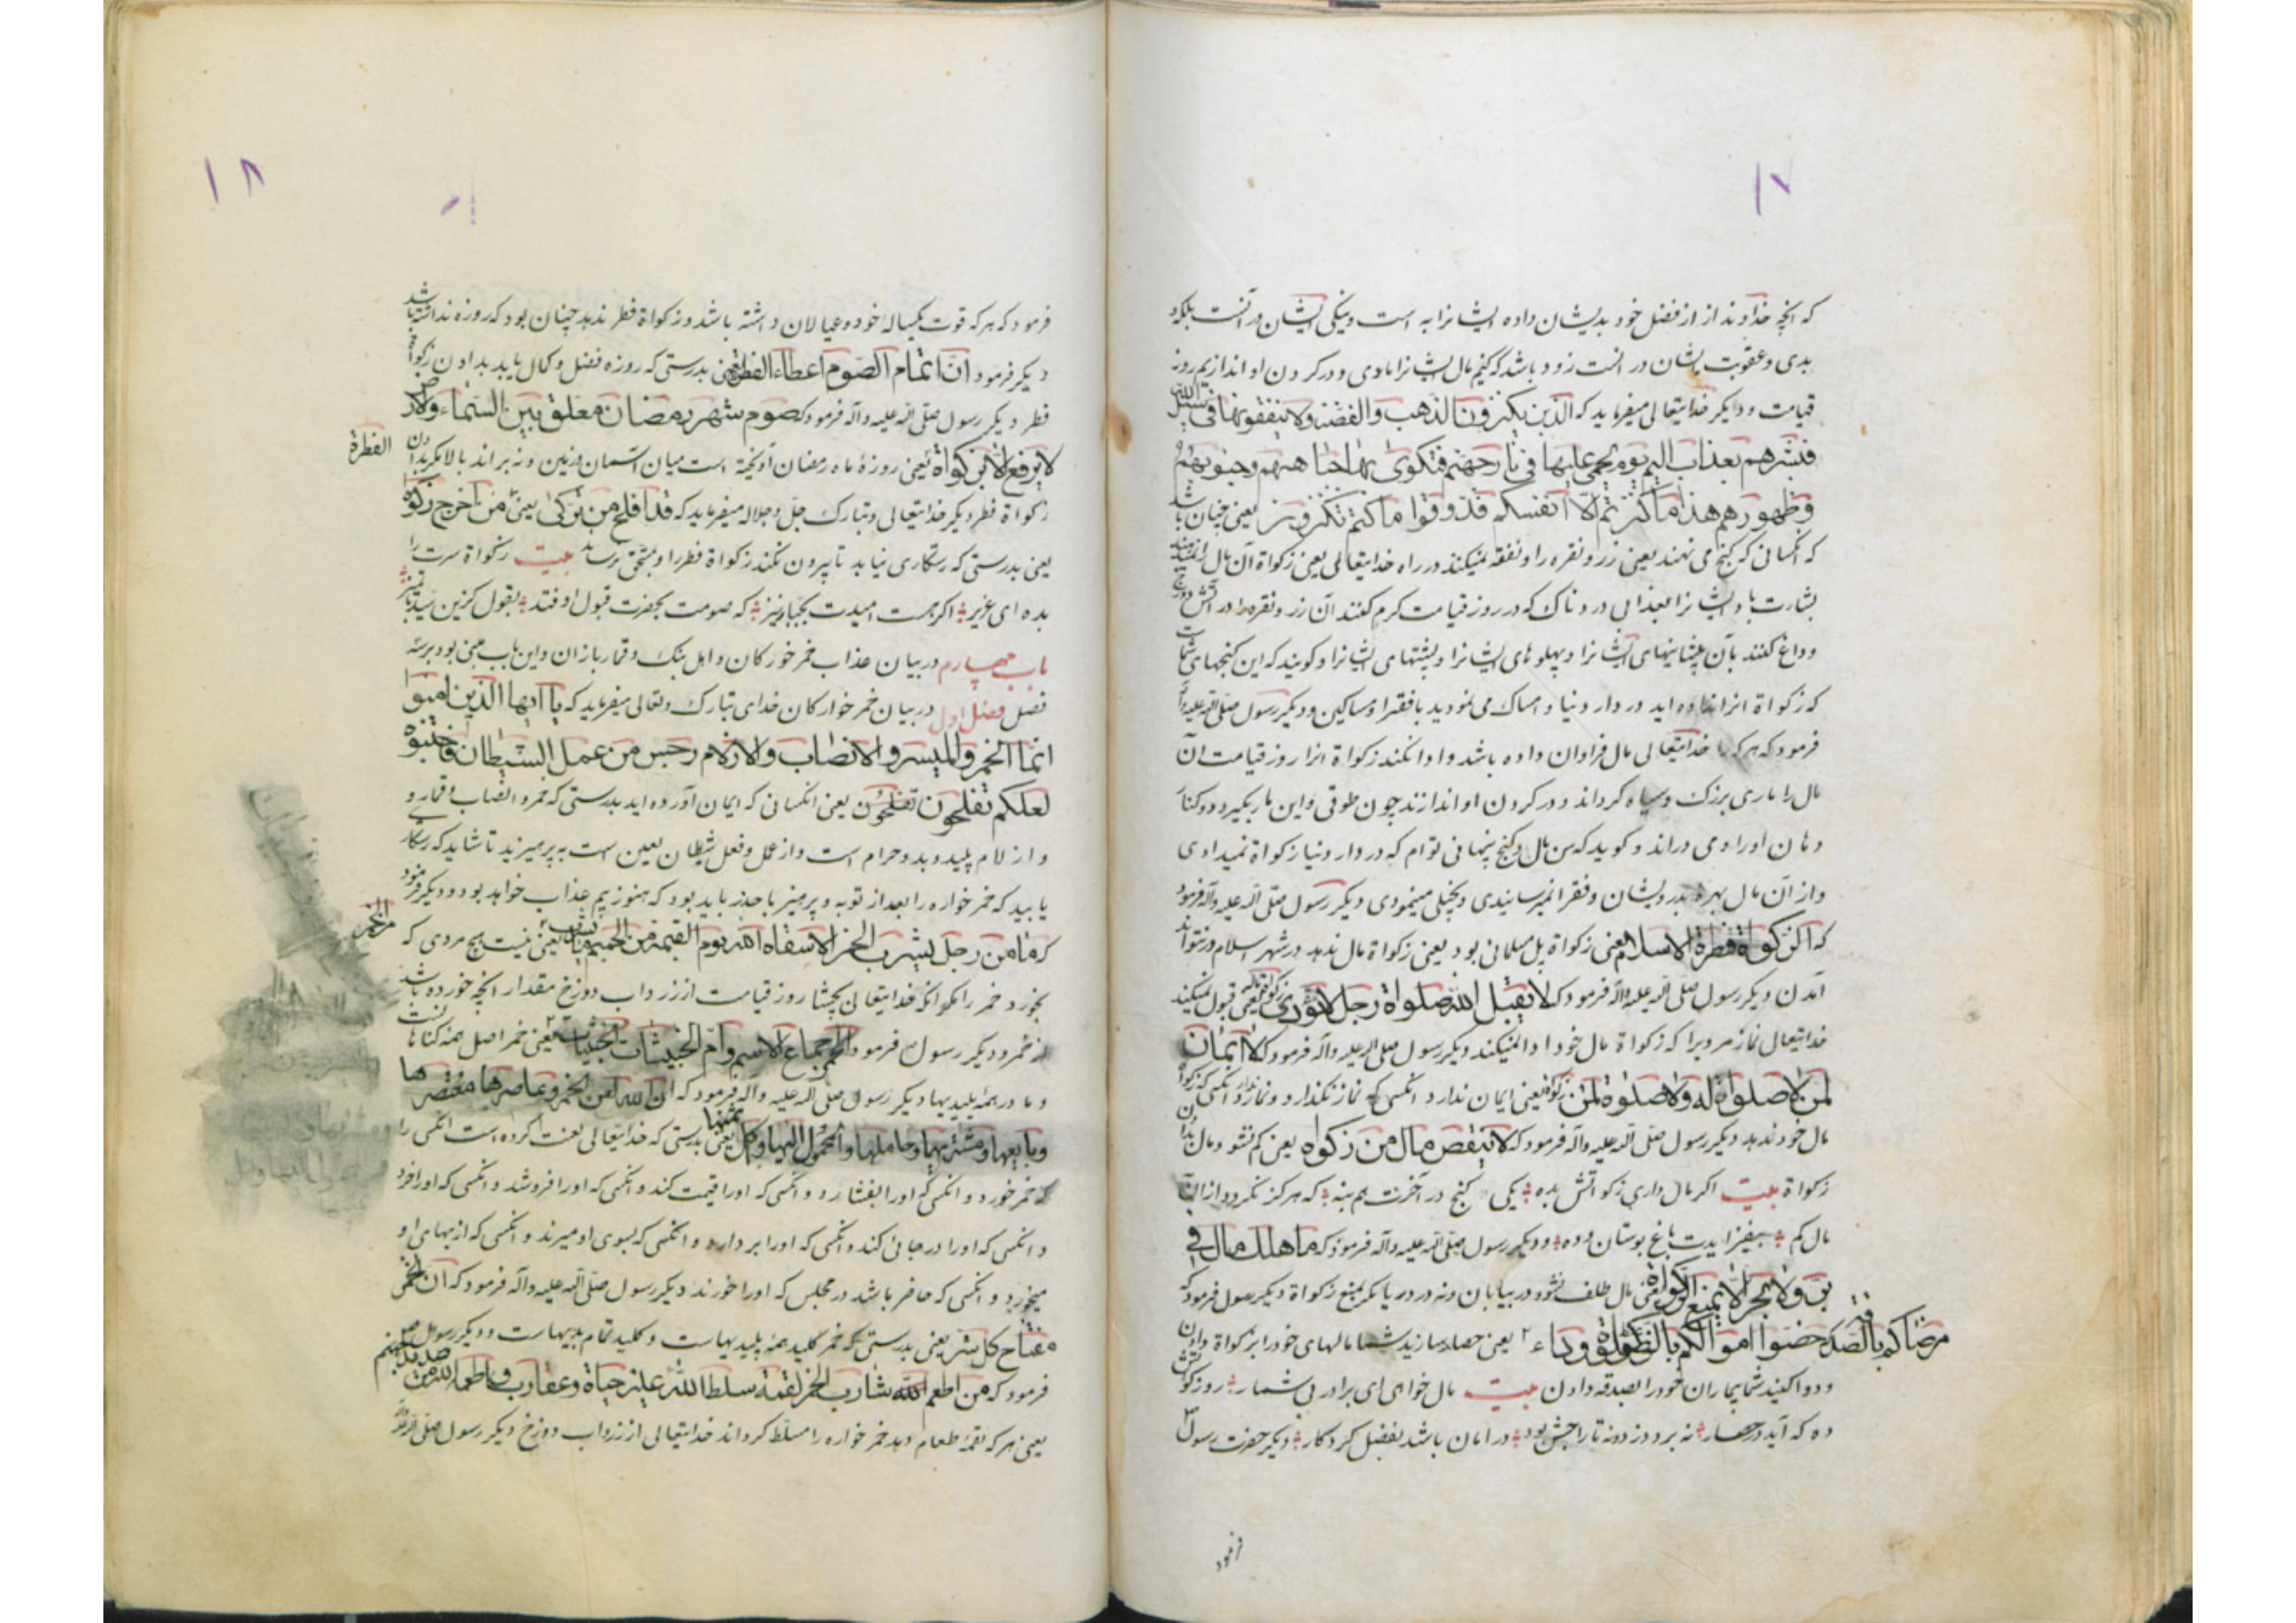 ۱۷
که انچه خداوند از فضل خود بدیشان داده ایشانرا به است و نیکی ایشان در آنست بلکه
بدی و عقوبت ایشان در انست زود باشد که کنیم مال ایشانرا ماری و در کردن او اندازیم روز
قیامت و دیکر خدایتعالی میفرماید که الذین یکنزون الذهب والفضة ولا ینفقونها فی سبیل الله
فبشرهم بعذاب الیم یوم یحمی علیها فی نار جهنم فتکوی بها جباههم وجنوبهم
وظهورهم هذا ما کنزتم لانفسکم فذوقوا ما کنتم تکنزون یعنی چنان باشد
که انکسانی که کنج می نهند یعنی زر و نقره را و نفقه نمیکنند در راه خدایتعالی یعنی زکواة آن مال
بشارت باد ایشانرا بعذابی دردناک که در روز قیامت کرم کنند آن زر و نقره را در آتش دوزخ
و داغ کنند بآن پیشانیهای ایشانرا و پهلوهای ایشانرا و پشتهای ایشانرا و کویند که این کنجهای شماست
که زکواة انرا نداده اید در دار دنیا و امساک می نمودید با فقرا و مساکین و دیکر رسول صلی الله علیه وآله
فرمود که هر که را خدایتعالی مال فراوان داده باشد و ادا نکند زکواة انرا روز قیامت آن
مال را ماری بزرک و سیاه کرداند و در کردن او اندازند چون طوقی و این مار بکیرد دو کنار
دهان او را و می دراند و کوید که من مال و کنج پنهانی توام که در دار دنیا زکواة نمیدادی
و از آن مال بهره بدرویشان و فقرا نمیرسانیدی و بخیلی مینمودی دیکر رسول صلی الله علیه وآله فرمود
که الزکواة قنطرة الاسلام یعنی زکواة پل مسلمانی بود یعنی زکواة مال ندهد در شهر اسلام نتواند
آمدن دیکر رسول صلی الله علیه وآله فرمود که لا یقبل الله صلواة رجل لا یؤدی زکواة ماله یعنی قبول نمیکند
خدایتعالی نماز مردیرا که زکواة مال خود ادا نمیکند دیکر رسول صلی الله علیه وآله فرمود که لا ایمان
لمن لا صلواة له ولا صلوة لمن لا زکوة له یعنی ایمان ندارد انکسی که نماز نکذارد و نماز ندارد انکسی که زکواة
مال خود ندهد دیکر رسول صلی الله علیه وآله فرمود که لا ینقص مال من زکواة یعنی کم نشود مال بدادن
زکواة بیت اکر مال داری زکواتش بده یکی کنج در آخرت هم بنه که هرکز نکردد از آن
مال کم بیفزایدت باغ بوستان و ده و دیکر رسول صلی الله علیه وآله فرمود که ما هلک مال فی
بر ولا بحر الا بمنع الزکواة یعنی مال طلف نشود در بیابان و نه در دریا مکر بمنع زکواة دیکر رسول فرمود که
حصنوا اموالکم بالزکواة وداووا مرضاکم بالصدقة یعنی حصار سازید شما مالهای خود را بزکواة دادن
و دوا کنید شما بیماران خود را بصدقه دادن بیت مال خواهی ای برادر بی شمار رو زکوتش
ده که آید در حصار نه برد دزد نه تاراجش بود در امان باشد بفضل کردکار دیکر حضرت رسول
فرمود
۱۸
فرمود که هر که قوت یکساله خود و عیالان داشته باشد و زکواة فطر ندهد چنان بود که روزه نداشته باشد
دیکر فرمود ان اتمام الصوم اعطاء الفطرة یعنی بدرستی که روزه فضل و کمال یابد بدادن زکواة
فطر دیکر رسول صلی الله علیه وآله فرمود که صوم شهر رمضان معلق بین السماء والارض
لا یرفع الا بزکواة یعنی روزهٔ ماه رمضان آویخته است میان آسمان و زمین و نبراند بالا مکر بدادن
الفطرة
زکواة فطر دیکر خدایتعالی و تبارک جل و جلاله میفرماید که قد افلح من تزکی یعنی من اخرج زکوة
یعنی بدرستی که رستکاری نیابد تا بیرون نکند زکواة فطر را و بمستحق نرساند بیت زکواة سرت را
بده ای عزیز اکر هست امیدت بجبار نیز که صومت بحضرت قبول اوفتد بقول کزین سید با تمیز
باب چهارم در بیان عذاب خمر خورکان و اهل بنک و قماربازان و این باب مبنی بود بر سه
فصل فصل اول در بیان خمر خوارکان خدای تبارک و تعالی میفرماید که یا ایها الذین امنوا
انما الخمر والمیسر والانصاب والازلام رجس من عمل الشیطان فاجتنبوه
لعلکم تفلحون تفلحون یعنی انکسانی که ایمان آورده اید بدرستی که خمر و انصاب و قمار و
و ازلام پلید و بد و حرام است و از عمل و فعل شیطان لعین است به پرهیزید تا شاید که رستکار
یابید که خمر خواره را بعد از توبه و پرهیز با حذر باید بود که هنوز بیم عذاب خواهد بود و دیکر فرمود
که ما من رجل یشرب الخمر الا سقاه الله یوم القیمة من الحمیم ما یشرب یعنی نیست هیچ مردی که
من الخمر
بخورد خمر را مکر انکه خدایتعالی بچشاند روز قیامت از زرداب دوزخ مقدار انچه خورده باشد
از خمر و دیکر رسول فرمود الخمر جماع الاثم وام الخبیثات الخبیثات یعنی خمر اصل همه کناهانست
و مادر همهٔ پلیدیها دیکر رسول صلی الله علیه وآله فرمود که ان الله لعن الخمر وعاصرها معتصرها
وبایعها ومشتریها وحاملها والمحمول الیها واکل ثمنها یعنی بدرستی که خدایتعالی لعنت کرده است انکس را
که خمر خورد و انکسی که اورا بفشارد و انکسی که اورا قیمت کند و انکسی که اورا فروشد و انکسی که اورا خرد
و انکسی که اورا در جائی کند و انکسی که اورا بردارد و انکسی که بسوی او میبرند و انکسی که از بهای او
میخورد و انکسی که حاضر باشد در مجلس که اورا خورند دیکر رسول صلی الله علیه وآله فرمود که ان الخمر
مفتاح کل شر یعنی بدرستی که خمر کلید همه پلیدیهاست و کلید تمام بدیهاست و دیکر رسول
فرمود که من اطعم شارب الخمر لقمة سلط الله علیه حیاة وعقارب واطعمه الله من صدید جهنم
یعنی هر که لقمهٔ طعام دهد خمر خواره را مسلط کرداند خدایتعالی از زرداب دوزخ دیکر رسول صلی الله علیه